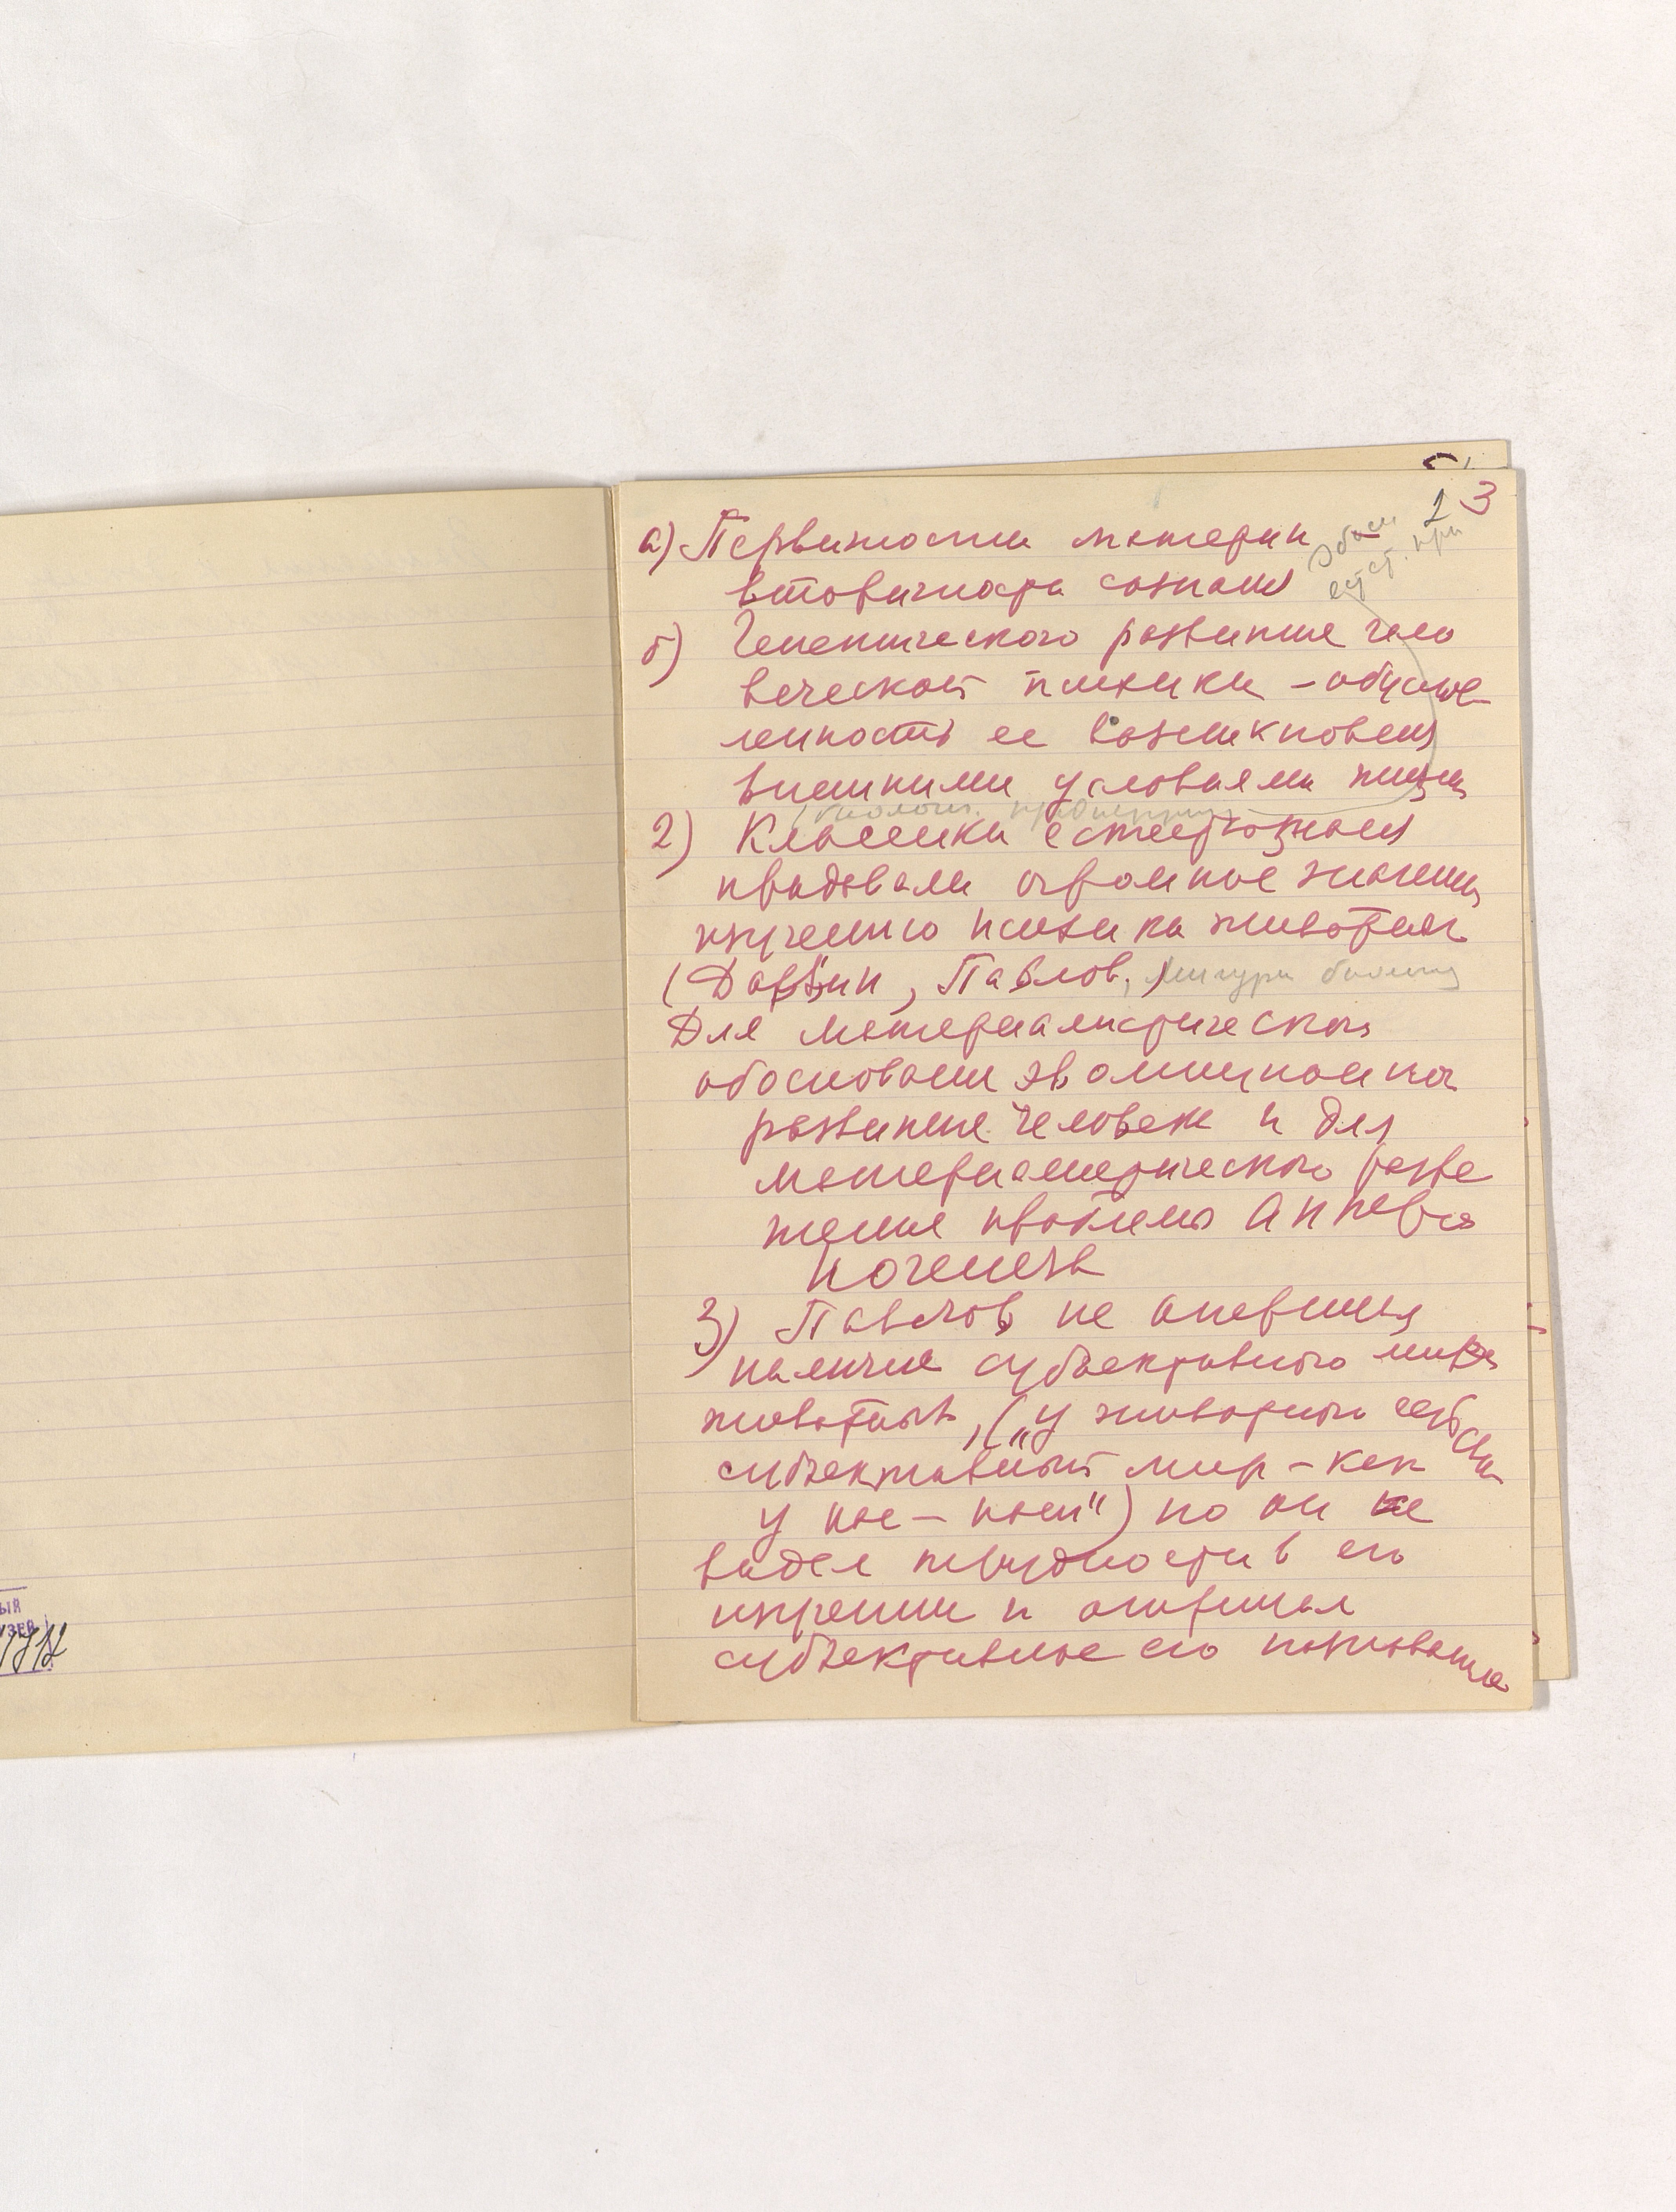 3
2
а) Первичности материи
вторичности сознания
б) Генетического развитие чело
веческой психики – обуслов
ленность ее возникновения
внешними условиями жизни
2) Классики естествознания
придавали огромное значение
изучению психики животных
(Дарвин, Павлов,)
Для материалистическог
обоснования эволюционног
развитие человека и для
материалистического разре
жения проблемы Антропо
ногенеза
3) Павлов не отрицал
наличие субъективного мира
животных, („У животных есть свой
субъективный мир – как
у нас – ") но он не
видел трудности в его
изучении и отрицал
субъективное его истолкование
ЫЙ
УЗЕЙ
1712